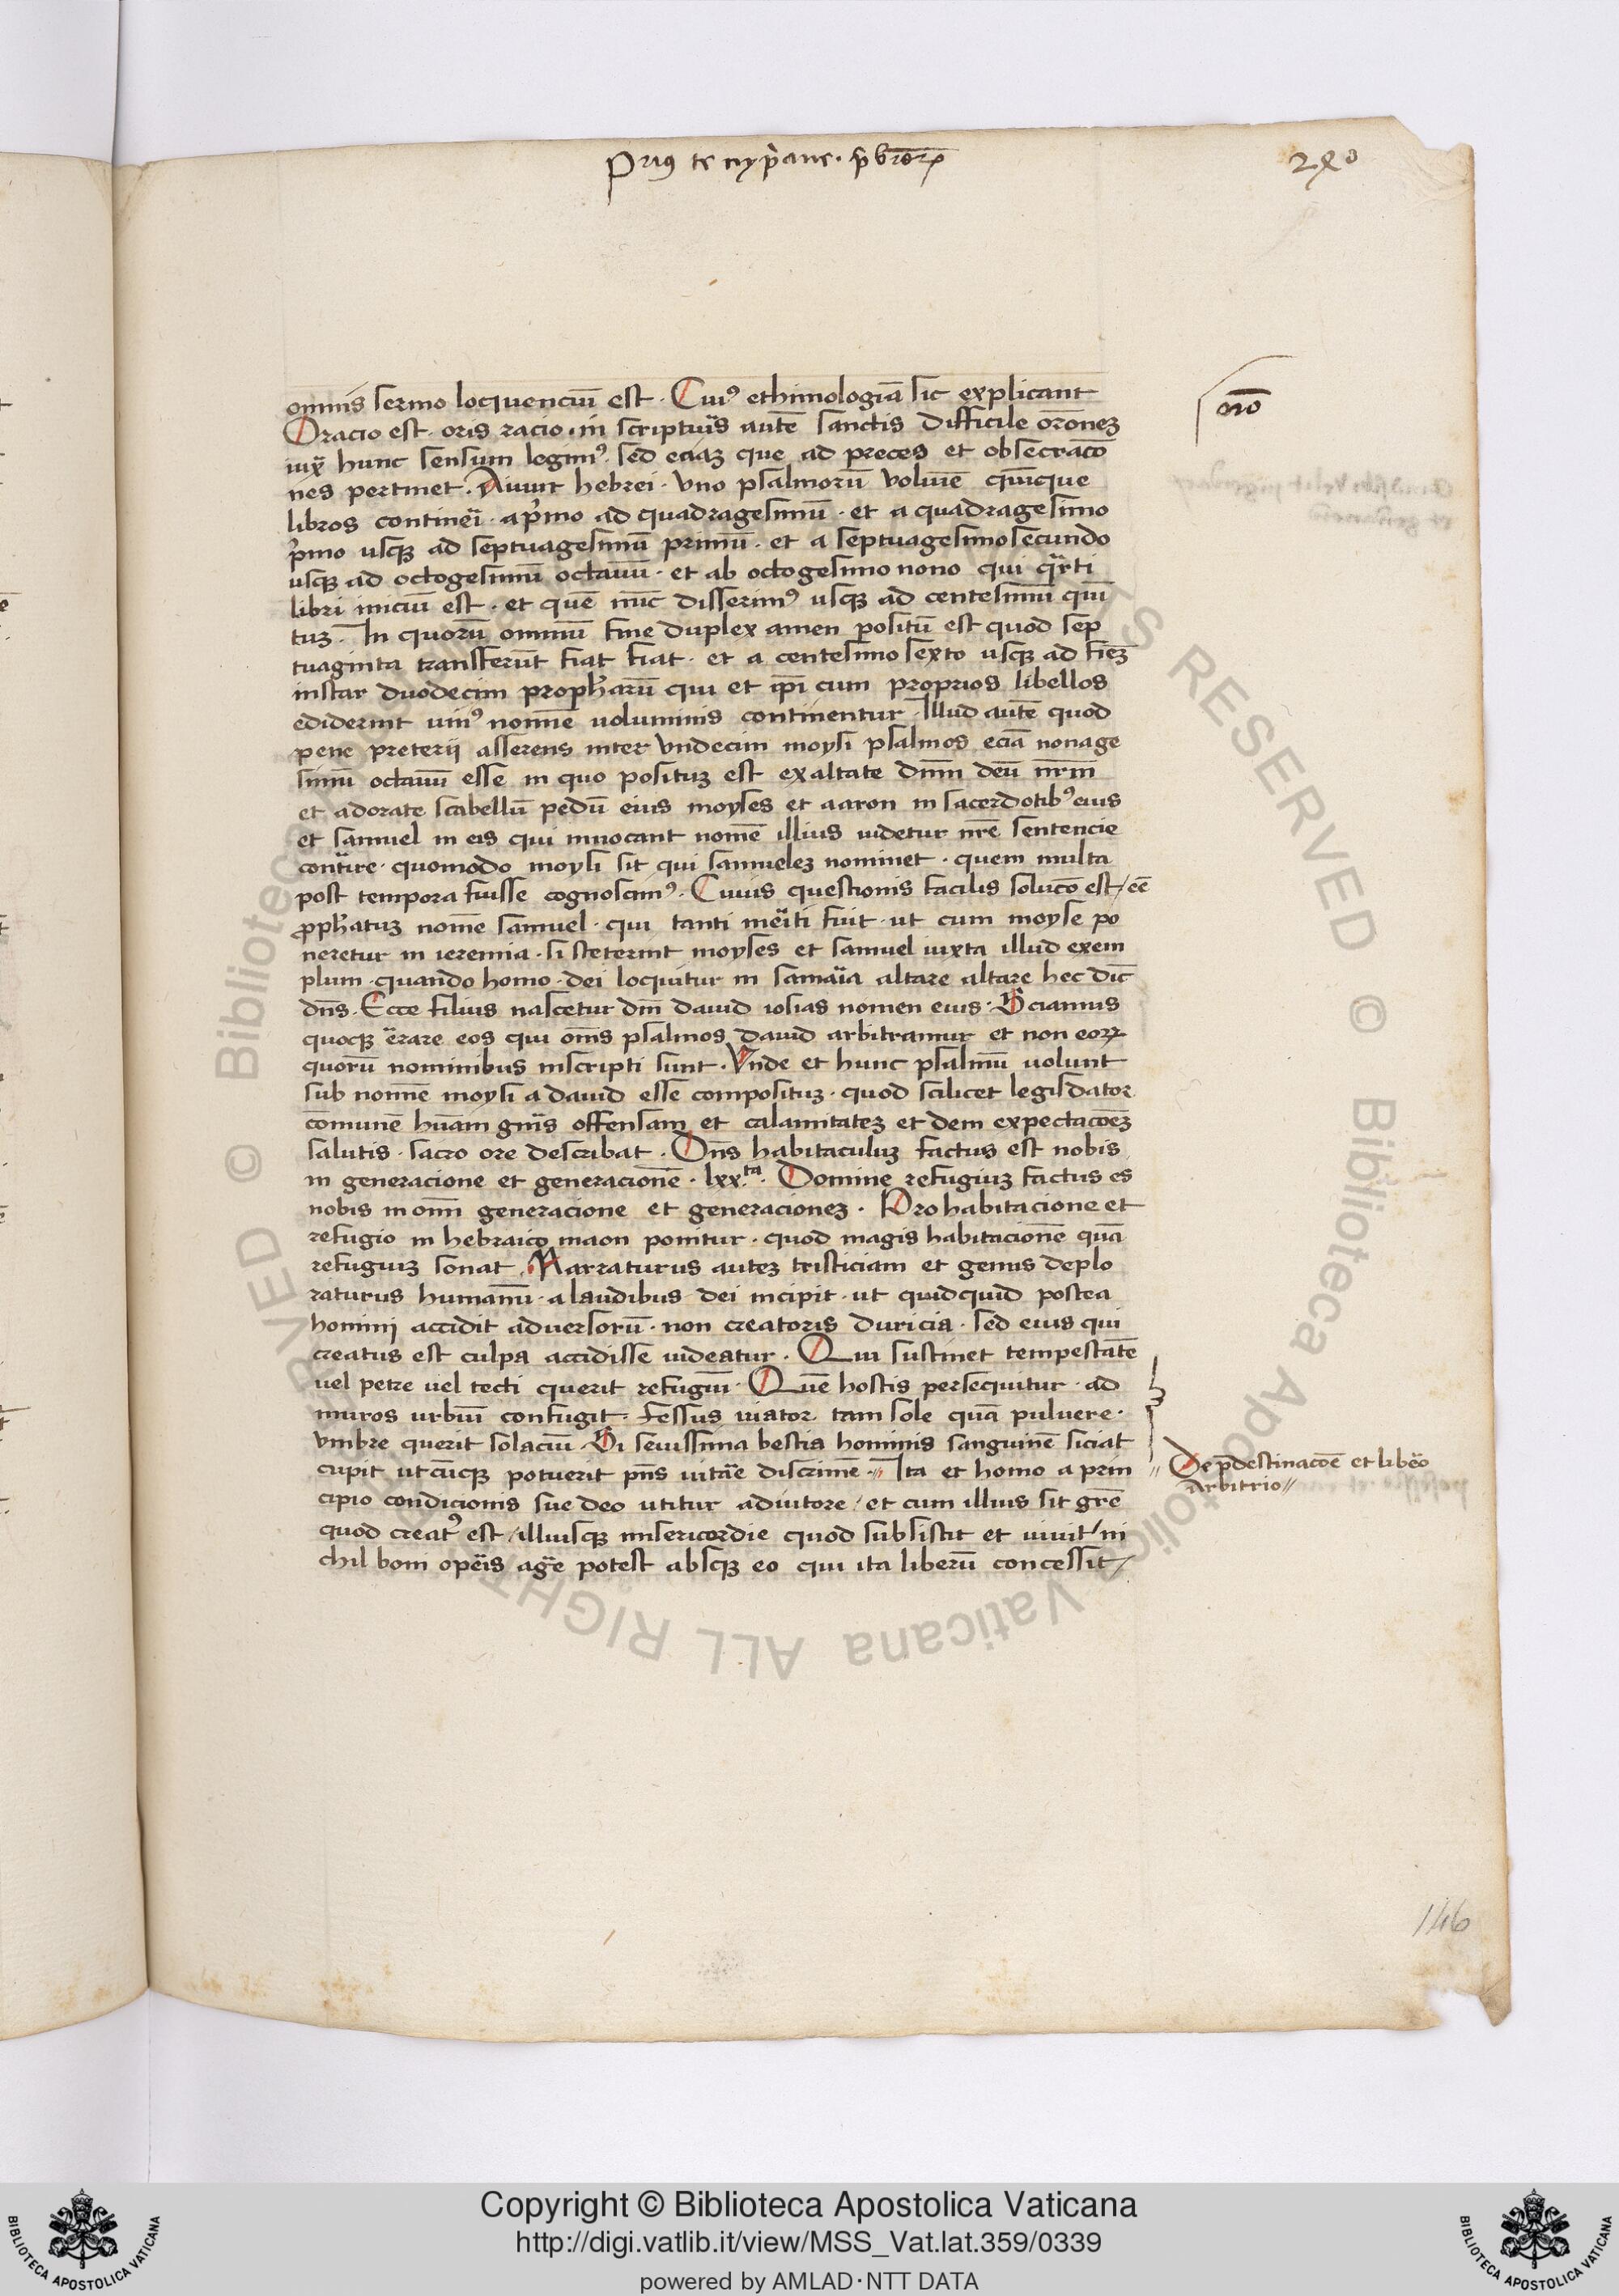 Priꝰ te cyp̄ane · p̄bro℞
280
om̄is sermo loquenciū est · Cuiꝰ ethimologiā sic explicant
Oracio est · oris racio · in scriptur̄is autē sanctis difficile or̄onēꝫ
iux̄ hunc sensum legimꝰ · sed eciāꝫ que ad preces et obsecrac̄o
nes pertinet · Aiunt hebrei · vno psalmorū volumē quinque
libros contineri · a p̄mo ad quadragesimū · et a quadragesimo
p̄mo usqꝫ ad septuagesimū primū · et a septuagesimo secundo
usqꝫ ad octogesimū octauū · et ab octogesimo nono qui qᵃrti
libri iniciū est · et quē nūc disserimꝰ usqꝫ ad centesimū quī
tuꝫ · In quorū omniū fine duplex amen positū est quod sep
tuaginta transferūt fiat fiat · et a centesimo sexto usqꝫ ad finēꝫ
instar duodecim prophetarū qui et ip̄i cum proprios libellos
ediderint uniꝰ nomine uoluminis continentur · Illud autē quod
pene preterij asserens inter vndecim moysi psalmos eciā nonage
simū octauū esse in quo posituꝫ est exaltate dn̄m deū nr̄m
et adorate scabellū pedū eius moyses et aaron in sacerdotibꝰ eius
et samuel in eis qui inuocant nomē illius uidetur nr̄e sentencie
contᵃire · quomodo moysi sit qui samueleꝫ nominet · quem multa
post tempora fuisse cognoscimꝰ · Cuius questionis facilis soluc̄o est / eē
ꝓphatuꝫ nomē samuel · qui tanti mer̄iti fuit · ut cum moyse po
neretur in ieremia · si steterint moyses et samuel iuxta illud exem
plum · quando homo · dei loquitur in samaria altare altare hec dic̄
dn̄s · Ecce filius nascetur dm̄ dauid iosias nomen eius · Sciamus
quoqꝫ errare eos qui om̄s psalmos dauid arbitramur et non eo℞
quorū nominibus inscripti sunt · Vnde et hunc psalmū uolunt
sub nomine moysi a dauid esse compositꝫ · quod scilicet legisdator
cōmunē hūam gn̄is offensam et calamitateꝫ et dem expectacōeꝫ
salutis · sacro ore describat · Dn̄s habitaculuꝫ factus est nobis
in generacione et generacionē · lxx.ᵗᵃ · Domine refugiuꝫ factus es
nobis in om̄i generacione et generacioneꝫ · Pro habitacione et
refugio in hebraico maon ponitur · quod magis habitacionē quā
refugiuꝫ sonat · Narraturus auteꝫ tristiciam et genus deplo
raturus humanū · a laudibus dei incipit · ut quidquid postea
homini accidit aduersorū · non creatoris duricia · sed eius qui
creatus est culpa accidisse uideatur · Qui sustinet tempestatē
uel petre uel tecti querit refugiū · Quē hostis persequitur · ad
muros urbiū confugit · fessus uiator tam sole quā puluere ·
vmbre querit solaciū · Si seuissima bestia hominis sanguinē siciat
cupit utcūqꝫ potuerit pn̄s uitare discrimē · // Ita et homo a prin
cipio condicionis sue deo utitur adiutore / et cum illius sit gr̄e
quod creatꝰ est / illiusqꝫ misericordie quod subsistit et uiuit / ni
chil boni oper̄is age potest absqꝫ eo qui ita liberū concessit /
or̄o
// De p̄destinacōe et libero
arbitrio //
146
Copyright © Biblioteca Apostolica Vaticana
http://digi.vatlib.it/view/MSS_Vat.lat.359/0339
powered by AMLAD·NTT DATA
BIBLIOTECA APOSTOLICA VATICANA
BIBLIOTECA APOSTOLICA VATICANA
© Biblioteca Apostolica Vaticana ALL RIGHTS RESERVED